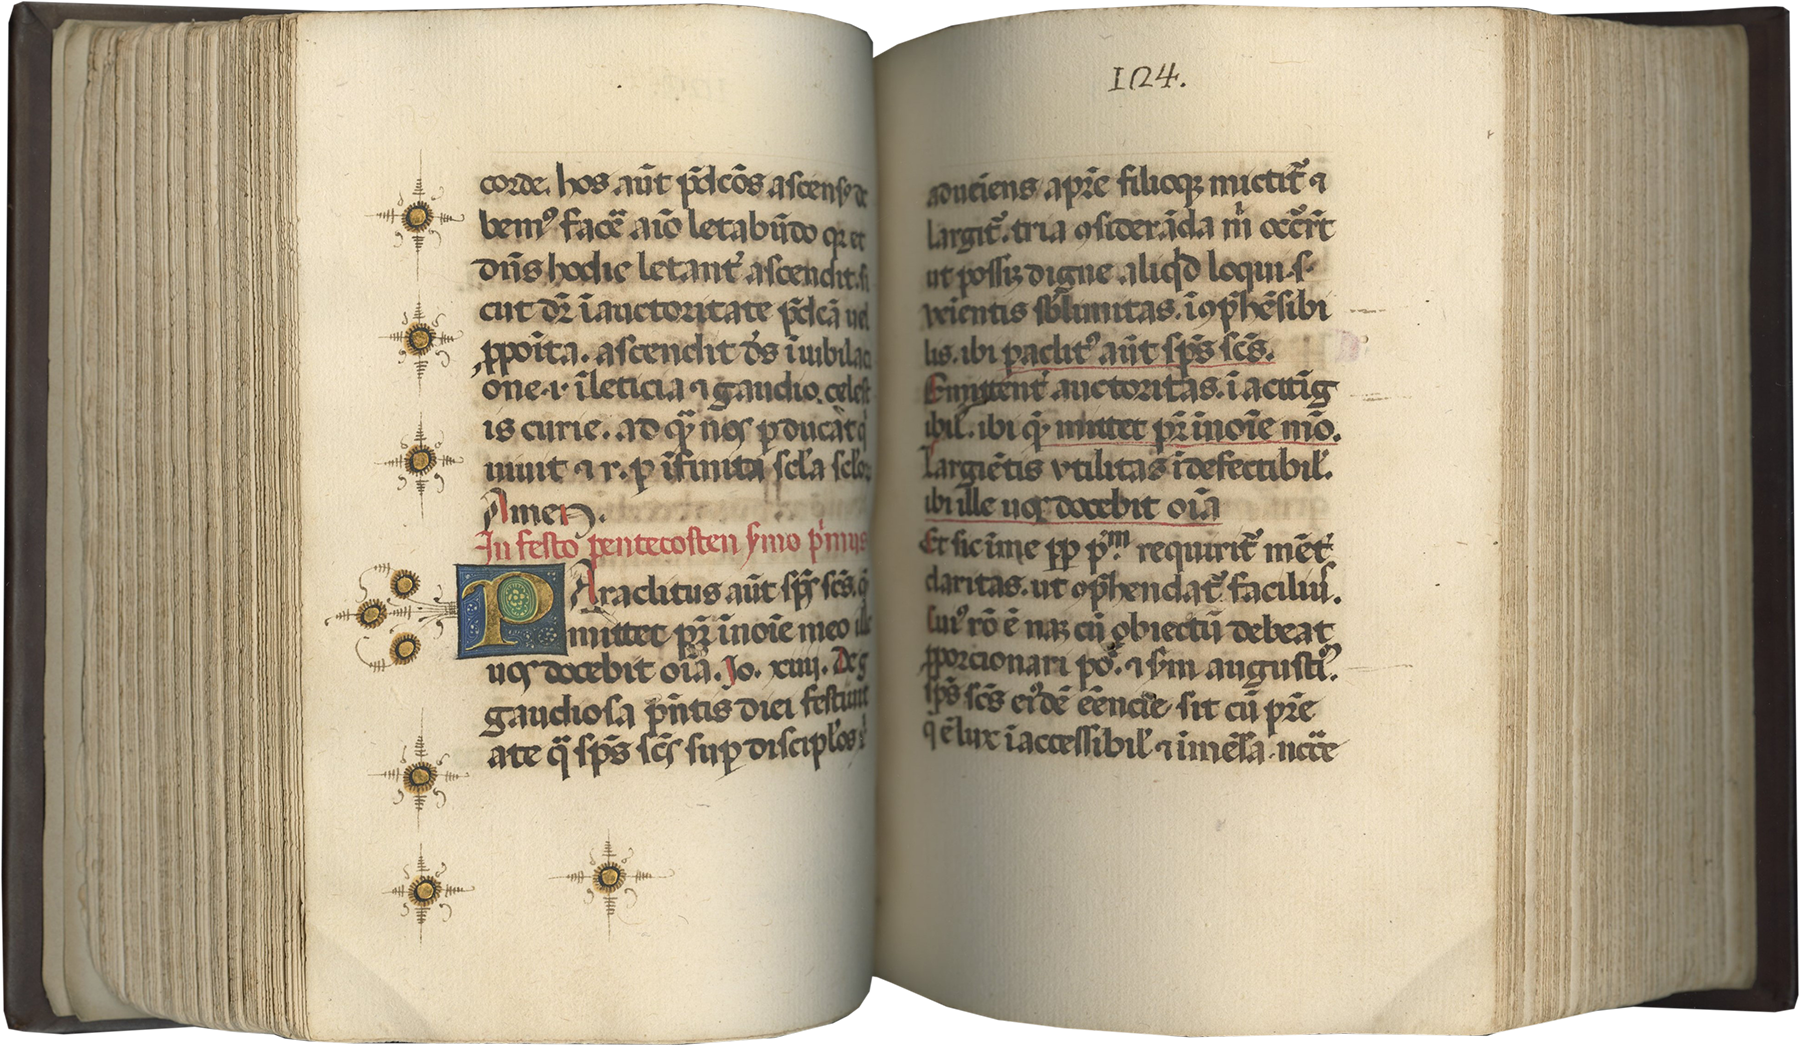 corde. hos aūt p̄dc̄os ascensꝰ de
bemꝰ facē aīo letabūdo qꝛ et
dn̄s hodie letant᷑ ascendit. si
cut dr̄ ī auctoritate p̄dcā uel
ꝓpoīta. ascendit dē̄s ī iubilaci
one .i. ī leticia ⁊ gaudio celest
is curie. ad qᷓ nos ꝑducat qͥ
uiuit ⁊ r. ꝑ īfinita scl̄a scl̄oꝝ
Amen.
In festo pentecosten s̄mo pͥmus
PAraclitus aūt sp̄s sc̄s. qᷓ
mittet pr̄ ī noīe meo ille
uos docebit oīa. Jo. xiiii. De g
gaudiosa p̄ntis diei festiuit
ate qᷓ sp̄s sc̄s suꝑ discipl̄os
124.
adueniens a pr̄e filioqꝫ mictit᷑ ⁊
largit᷑. tria ꝯsiderāda m̄ occr̄rt
ut possiꝫ digne aliqͥd loqui. s.
veientis sb̄limitas. īꝯp̄hēsibi
lis. ibi paclitꝰ aūt sp̄s sc̄s.
Emittent᷑ auctoritas. ī acttīg
ibil̄. ibi qᷓ mittet pr̄ ī noīe mō.
Largiētis vtilitas īdefectibil̄.
ibi ille uos docebit oīa
Et sic īme pp pᵐ. requirit᷑ mēt᷑
claritas. ut ꝯp̄hendat᷑ faciliuꝰ.
suiꝰ rō ē naꝫ cū obiectū debeat
ꝓporcionari po. ⁊ s̄m augustiꝫ.
sp̄s sc̄s eiꝰdē eēncie sit cū pr̄e
q ē lux īaccessibil̄ ⁊ īmēsa ncc̄e